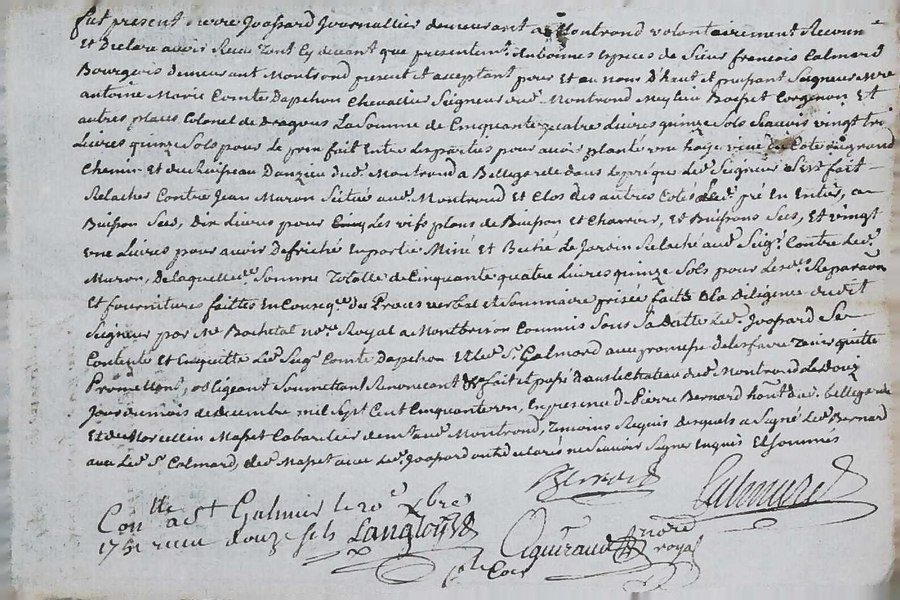 fut present Pierre Joassard Journallier demeurant a Montrond volontairement Reconnu
Et Declare avoir Receu tant Cy devant que presentemt. En bonnes especes de Sieur francois Calmard
Bourgeois demeurant Montrond present et acceptant pour Et au nom d'haut et puissant Seigneur mre
antoine Marie Comte Dapchon Chevallier Seigneur dud. Montrond Meylieu Boisset Et
autres places Colonel de Dragons La Somme de Cinquante quatre Livres quinze Sols Scavoir vingt trois
Livres quinze Sols pour le prix fait Entre les parties pour avoir planté une haye vive du Coté du grand
Chemin Et du Ruisseau Danzieu dud. Montrond a Bellegarde dans le pré que led. Seigneur S'est fait
Relacher Contre Jean Muron Scitué aud. Montrond et Clos des autres Cotés led. pré En Entier, en
Buisson Secs, Dix Livres pour les vifs plans de Buisson Et Charroir, Et Buissons Secs, Et vingt
une Livres pour avoir Defriché En partie Miné Et Beché Le Jardin Relaché aud. Seigr. Contre Led.
Muron, De laquelle d. Somme Totalle de Cinquante quatre Livres quinze Sols pour Lesd. Reparaõn
Et fournitures faittes En Conseqce. du Proces verbal et Sommaire prisée faitte a la Diligence dudit
Seigneur par Me Rochetal nore. Royal a Montbrison Commis Sous Sa Datte Led. Joassard Se
Contente Et En quitte Led. Seigr. Comte Dapchon Et led. Sr. Calmard avec promesse de les faire tenir quitte
Promettant, obligeant Soumettant Renoncant &c fait et passé dans le Chateau dud. Montrond Le Douze
Jour du mois de decembre mil Sept Cent Cinquante un, En presence de Pierre Bernard de Bellegarde
Et de Marcellin Masset Cabartier demt. aud. Montrond, Temoins Requis desquels a Signé Led. Bernard
avec Led. Sr. Calmard, Led. Masset avec Led. Joassard ont declarés ne Scavoir Signe Enquis Et Sommés
Bernard Calmard
Conlle. a St Galmier le 20e Xbre
1751 receu douze sols Langlois
Aguiraud nore royal